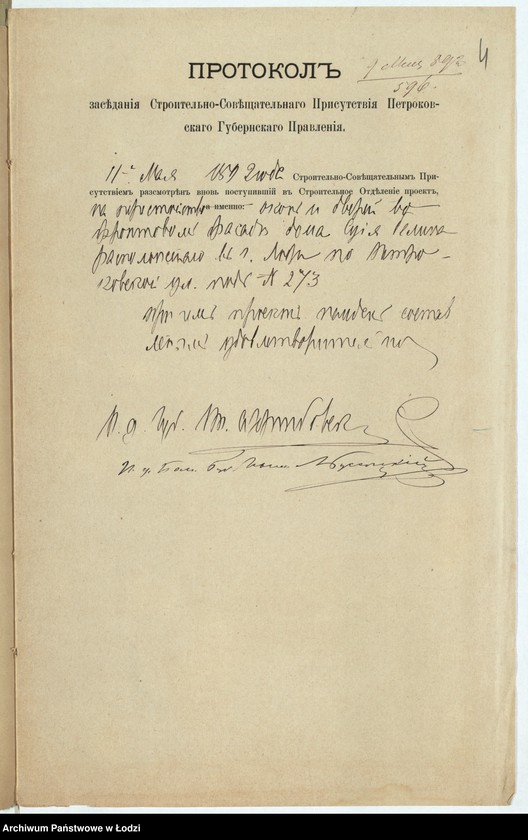 4
9 Мая 892
596.
ПРОТОКОЛЪ
засѣданія Строительно-Совѣщательнаго Присутствія Петроков-
скаго Губернскаго Правленія.
11-го Мая 1892 года Строительно-Совѣщательнымъ При-
сутствіемъ разсмотрѣнъ вновь поступившій въ Строительное Отдѣленіе проектъ,
на а именно: оконъ и дверей во
фронтовомъ фасадѣ дома
въ г. Лодзи по Петро-
ковской ул. подъ № 273
при чемъ проектъ найденъ состав
леннымъ удовлетворительно
Archiwum Państwowe w Łodzi